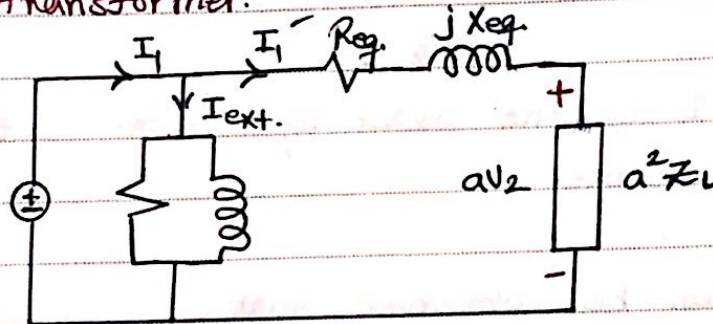 transformer.
I₁ I₁′ Req. jXeq.
Iext.
+
aV₂ a²ZL
-